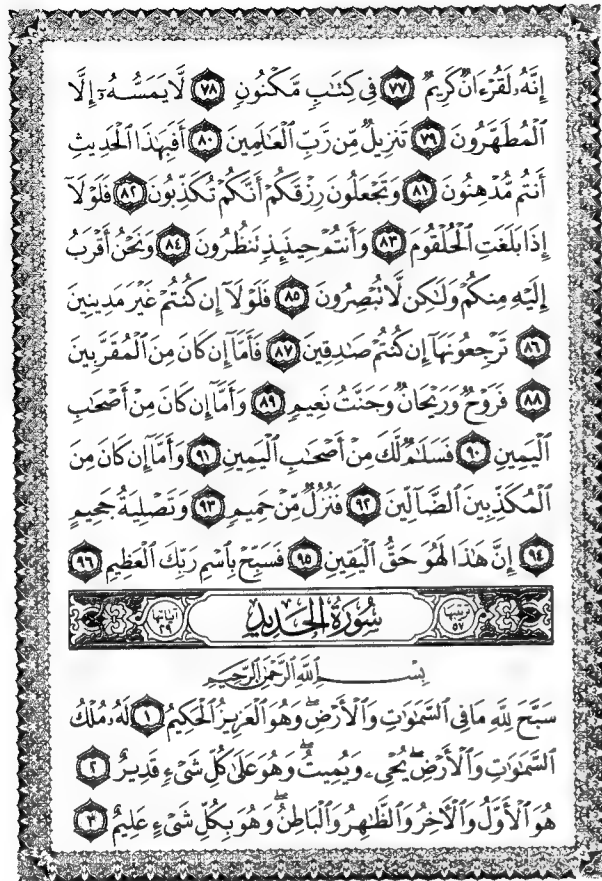 إِنَّهُۥ لَقُرْءَانٌ كَرِيمٌ ٧٧ فِى كِتَٰبٍ مَّكْنُونٍ ٧٨ لَّا يَمَسُّهُۥٓ إِلَّا
ٱلْمُطَهَّرُونَ ٧٩ تَنزِيلٌ مِّن رَّبِّ ٱلْعَٰلَمِينَ ٨٠ أَفَبِهَٰذَا ٱلْحَدِيثِ
أَنتُم مُّدْهِنُونَ ٨١ وَتَجْعَلُونَ رِزْقَكُمْ أَنَّكُمْ تُكَذِّبُونَ ٨٢ فَلَوْلَآ
إِذَا بَلَغَتِ ٱلْحُلْقُومَ ٨٣ وَأَنتُمْ حِينَئِذٍ تَنظُرُونَ ٨٤ وَنَحْنُ أَقْرَبُ
إِلَيْهِ مِنكُمْ وَلَٰكِن لَّا تُبْصِرُونَ ٨٥ فَلَوْلَآ إِن كُنتُمْ غَيْرَ مَدِينِينَ
٨٦ تَرْجِعُونَهَآ إِن كُنتُمْ صَٰدِقِينَ ٨٧ فَأَمَّآ إِن كَانَ مِنَ ٱلْمُقَرَّبِينَ
٨٨ فَرَوْحٌ وَرَيْحَانٌ وَجَنَّتُ نَعِيمٍ ٨٩ وَأَمَّآ إِن كَانَ مِنْ أَصْحَٰبِ
ٱلْيَمِينِ ٩٠ فَسَلَٰمٌ لَّكَ مِنْ أَصْحَٰبِ ٱلْيَمِينِ ٩١ وَأَمَّآ إِن كَانَ مِنَ
ٱلْمُكَذِّبِينَ ٱلضَّآلِّينَ ٩٢ فَنُزُلٌ مِّنْ حَمِيمٍ ٩٣ وَتَصْلِيَةُ جَحِيمٍ
٩٤ إِنَّ هَٰذَا لَهُوَ حَقُّ ٱلْيَقِينِ ٩٥ فَسَبِّحْ بِٱسْمِ رَبِّكَ ٱلْعَظِيمِ ٩٦
ترتيبها ٥٧ سُورَةُ الحَدِيدِ آياتها ٢٩
بِسْمِ ٱللَّهِ ٱلرَّحْمَٰنِ ٱلرَّحِيمِ
سَبَّحَ لِلَّهِ مَا فِى ٱلسَّمَٰوَٰتِ وَٱلْأَرْضِ ۖ وَهُوَ ٱلْعَزِيزُ ٱلْحَكِيمُ ١ لَهُۥ مُلْكُ
ٱلسَّمَٰوَٰتِ وَٱلْأَرْضِ ۖ يُحْىِۦ وَيُمِيتُ ۖ وَهُوَ عَلَىٰ كُلِّ شَىْءٍ قَدِيرٌ ٢
هُوَ ٱلْأَوَّلُ وَٱلْءَاخِرُ وَٱلظَّٰهِرُ وَٱلْبَاطِنُ ۖ وَهُوَ بِكُلِّ شَىْءٍ عَلِيمٌ ٣